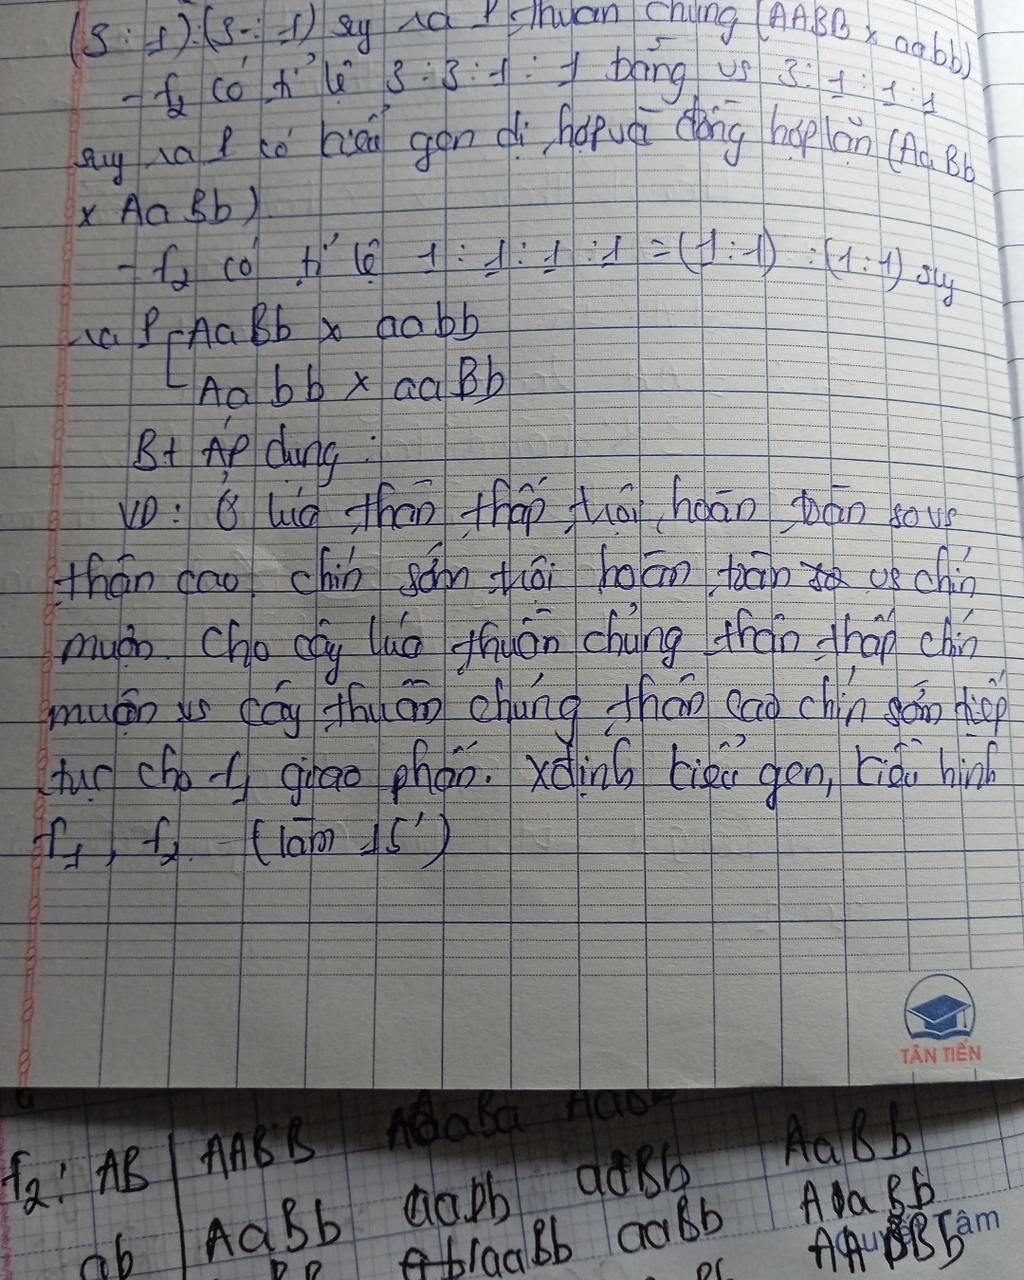 (3:1).(3:1) suy ra P thuần chủng (AABB x aabb)
- f2 có tỉ lệ 3:3:1:1 bằng vs 3:1:1:1
suy ra P có kiểu gen dị hợp và đồng hợp lặn (AaBb
x AaBb)
- f2 có tỉ lệ 1:1:1:1 = (1:1):(1:1) suy
ra P AaBb x aabb
Aabb x aaBb
Bt Áp dụng:
VD: Ở lúa thân thấp trội hoàn toàn so vs
thân cao, chín sớm trội hoàn toàn so vs chín
muộn. Cho cây lúa thuần chủng thân thấp chín
muộn vs cây thuần chủng thân cao chín sớm tiếp
tục cho f1 giao phấn. Xđịnh kiểu gen, kiểu hình
f1, f2. (làm 15')
TÂN TIẾN
f2: AB AABB AaBb
ab AaBb aaBb AaBb
aaBb